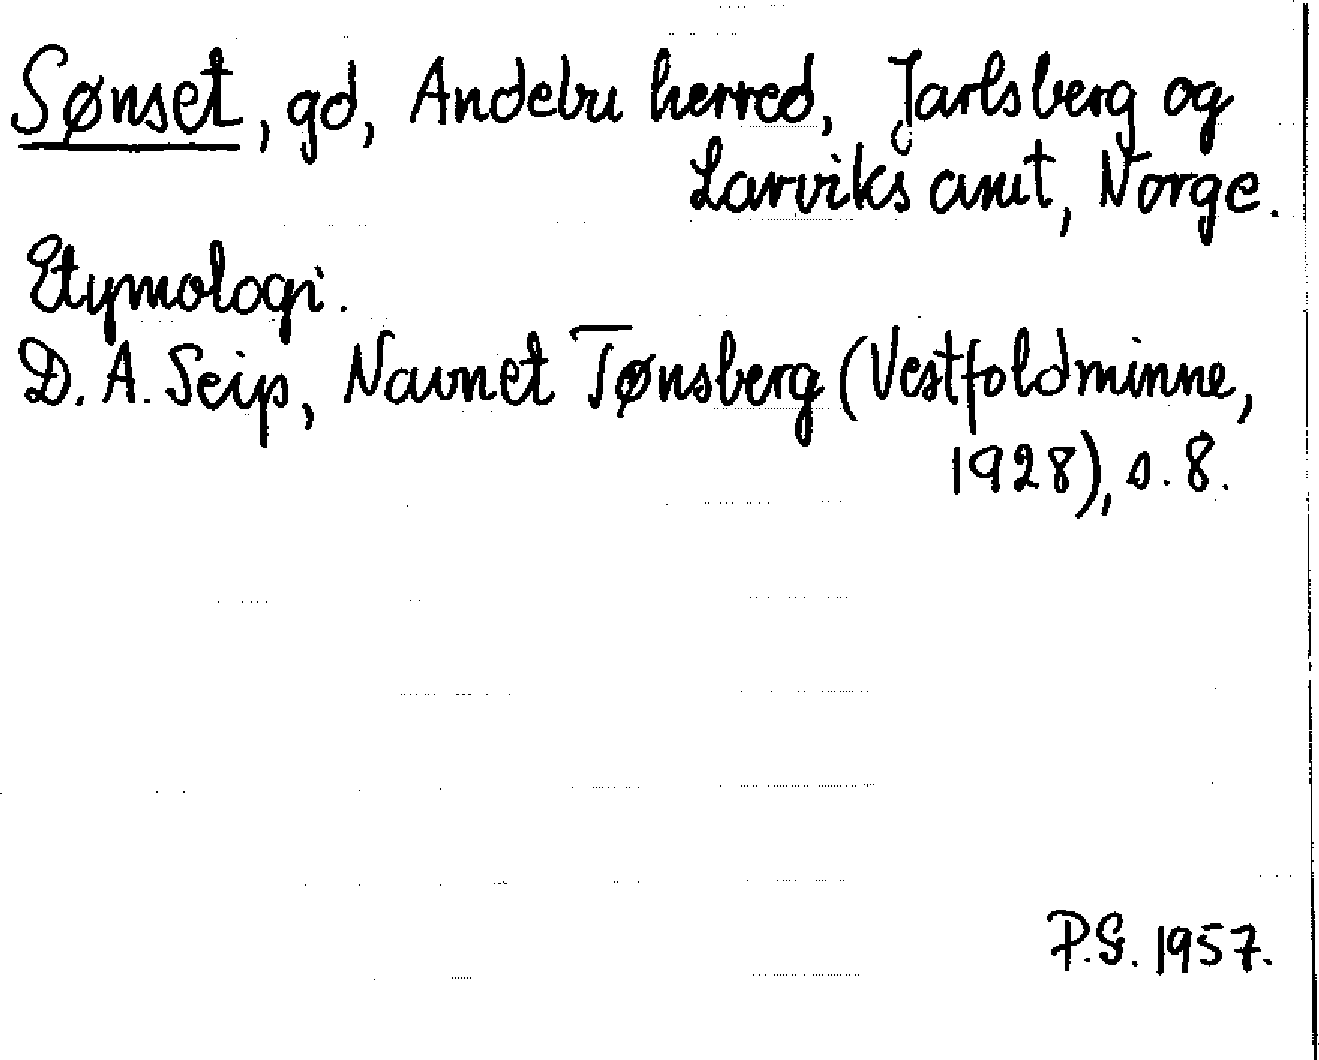 Sønset, gd, Andebu herred, Jarlsberg og
Larviks amt, Norge.
Etymologi.
D. A. Seip, Navnet Tønsberg (Vestfoldminne,
1928), s. 8.
P.G. 1957.